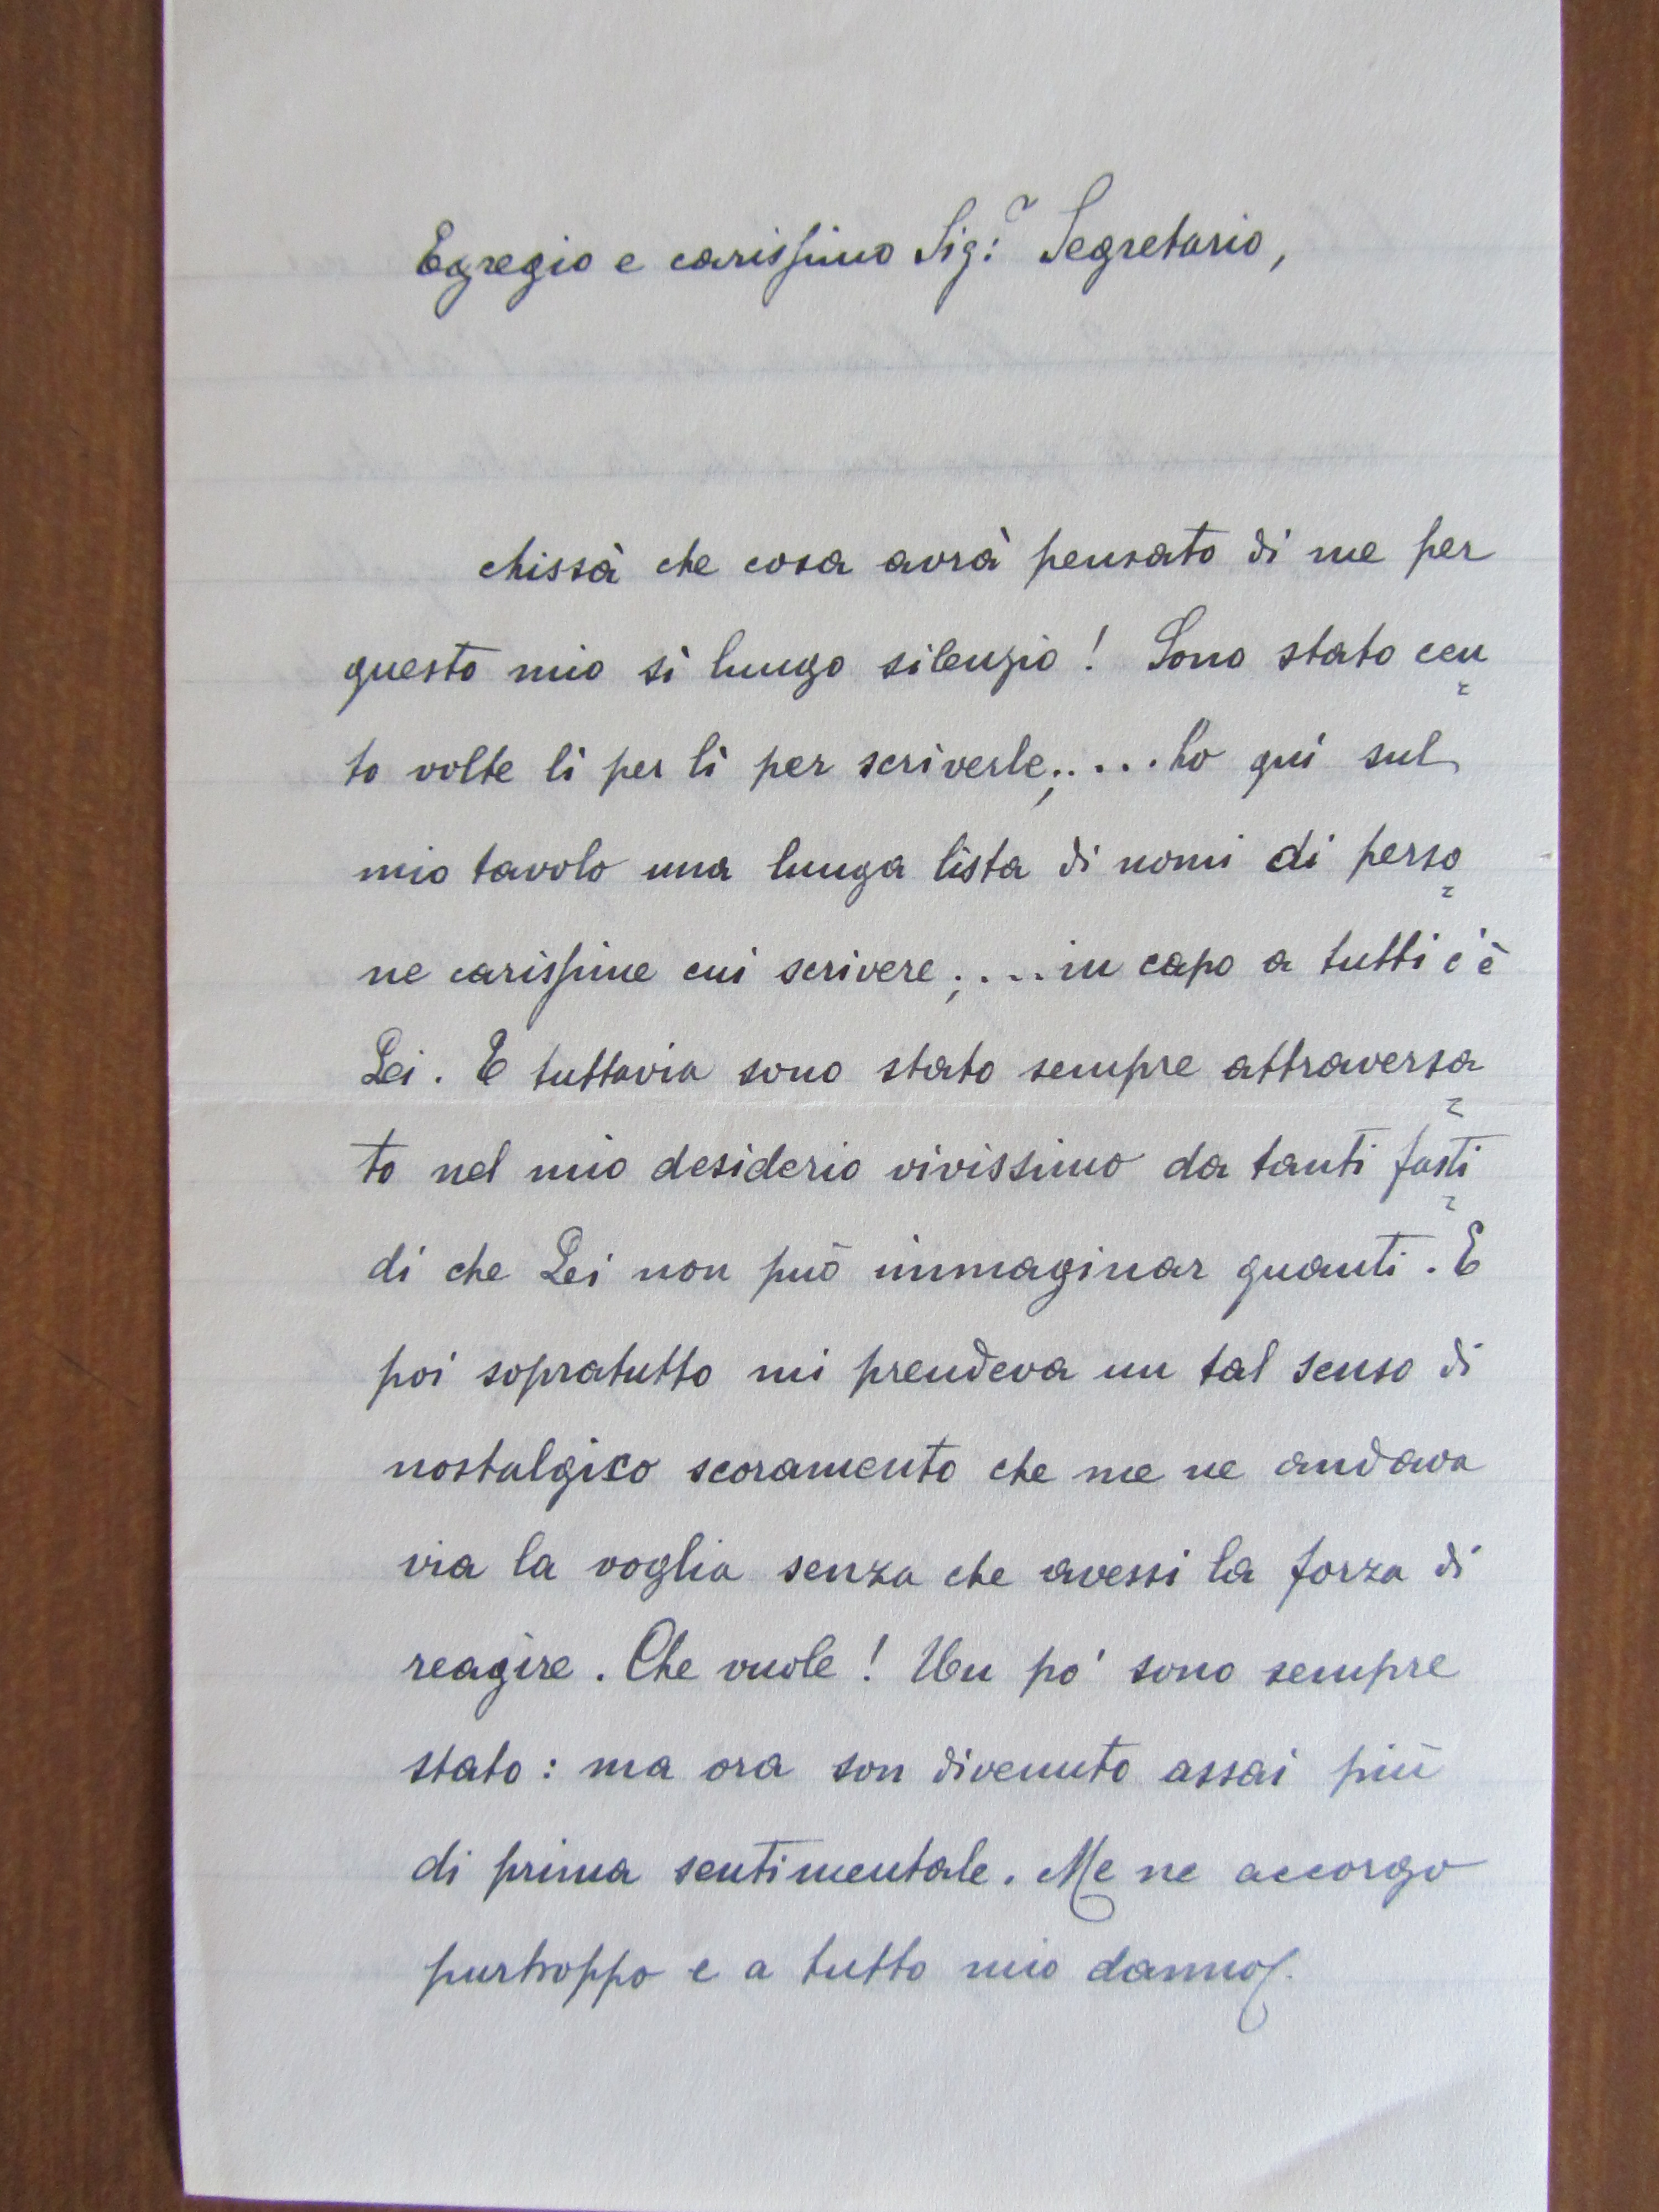 Egregio e carissimo Sig.r Segretario,
chissà che cosa avrà pensato di me per
questo mio sì lungo silenzio! Sono stato cen=
to volte lì per lì per scriverle;.... ho quì sul
mio tavolo una lunga lista di nomi di perso=
ne carissime cui scrivere;.... in capo a tutti c'è
Lei. E tuttavia sono stato sempre attraversa=
to nel mio desiderio vivissimo da tanti fasti=
di che Lei non può immaginar quanti. E
poi sopratutto mi prendeva un tal senso di
nostalgico scoramento che me ne andava
via la voglia senza che avessi la forza di
reagire. Che vuole! Un po' sono sempre
stato: ma ora son divenuto assai più
di prima sentimentale. Me ne accorgo
purtroppo e a tutto mio danno.